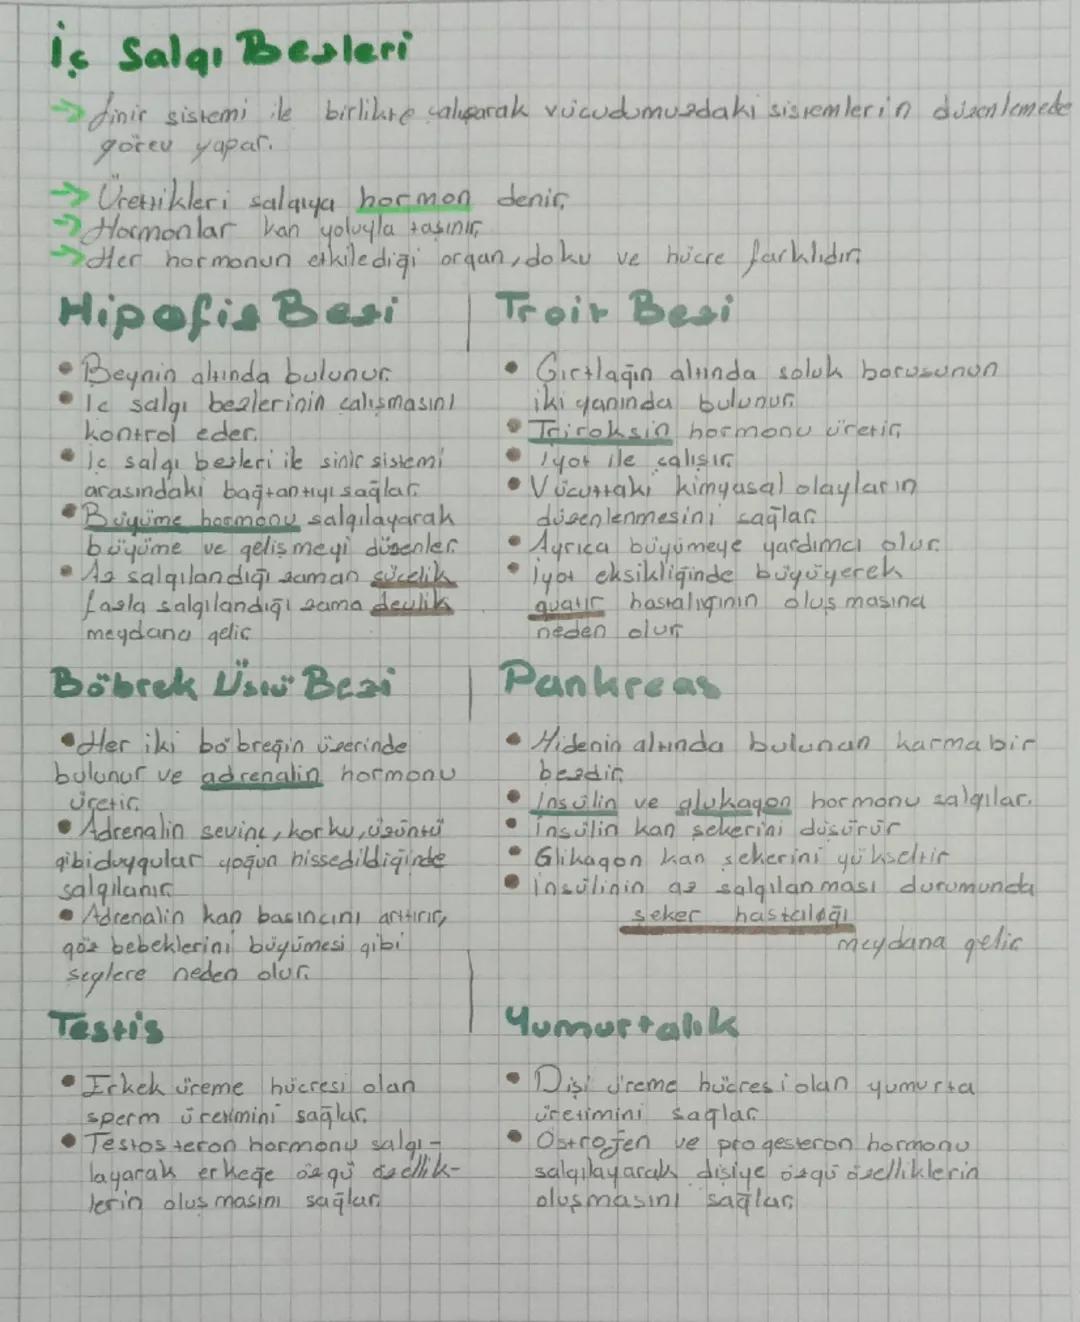 İç Salgı Bezleri
→ Sinir sistemi ile birlikte çalışarak vücudumuzdaki sistemlerin düzenlemede
görev yapar.
→ Ürettikleri salgıya hormon denir.
→ Hormonlar kan yoluyla taşınır.
→ Her hormonun etkilediği organ, doku ve hücre farklıdır.
Hipofiz Bezi
• Beynin altında bulunur.
• İç salgı bezlerinin çalışmasını
kontrol eder.
• İç salgı bezleri ile sinir sistemi
arasındaki bağtantıyı sağlar.
• Büyüme hormonu salgılayarak
büyüme ve gelişmeyi düzenler.
• Az salgılandığı zaman cücelik
fazla salgılandığı zama devlik
meydana gelir
Troit Bezi
• Gırtlağın altında soluk borusunun
iki yanında bulunur.
• Triroksin hormonu üretir.
• İyot ile çalışır.
• Vücuttaki kimyasal olayların
düzenlenmesini sağlar.
• Ayrıca büyümeye yardımcı olur.
• İyot eksikliğinde büyüyerek
guatır hastalığının oluşmasına
neden olur
Böbrek Üstü Bezi
• Her iki böbreğin üzerinde
bulunur ve adrenalin hormonu
üretir.
• Adrenalin sevinç, korku, üzüntü
gibi duygular yoğun hissedildiğinde
salgılanır.
• Adrenalin kan basıncını arttırır,
göz bebeklerini büyümesi gibi
şeylere neden olur.
Pankreas
• Midenin altında bulunan karma bir
bezdir.
• İnsülin ve glukagon hormonu salgılar.
• İnsülin kan şekerini düşürür
• Glikagon kan şekerini yükseltir
• İnsülinin az salgılanması durumunda
şeker hastalığı
meydana gelir
Testis
• Erkek üreme hücresi olan
sperm üretimini sağlar.
• Testosteron hormonu salgı-
layarak erkeğe özgü özellik-
lerin oluşmasını sağlar.
Yumurtalık
• Dişi üreme hücresi olan yumurta
üretimini sağlar.
• Östrojen ve progesteron hormonu
salgılayarak dişiye özgü özelliklerin
oluşmasını sağlar.